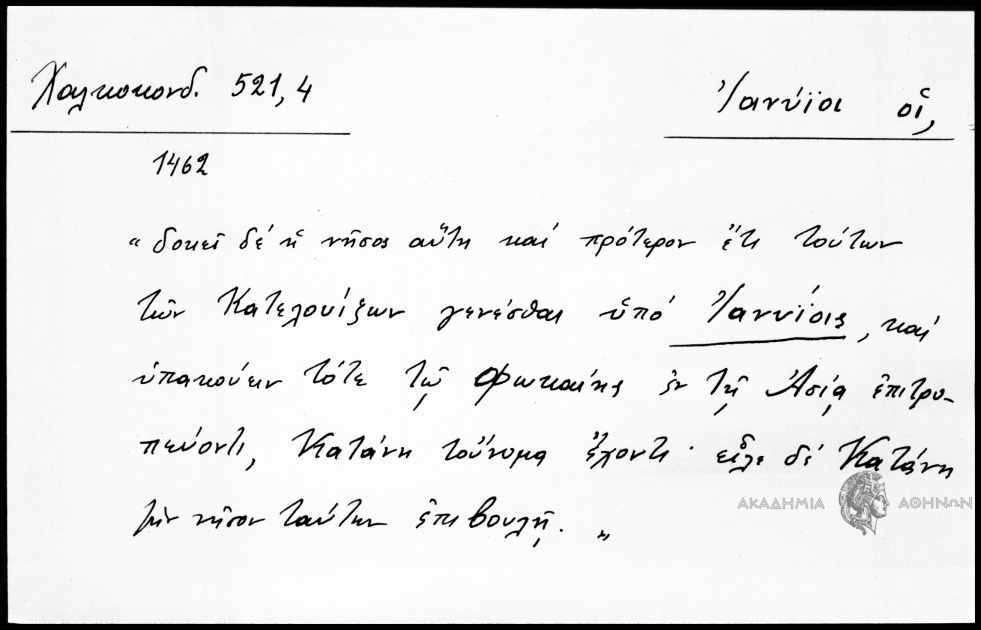 Χαλκοκονδ. 521,4
Ἰανύϊοι οἱ,
1462
“ δοκεῖ δέ ἡ νῆσος αὕτη καί πρότερον ἔτι τούτων
τῶν Κατελουίξων γενέσθαι ὑπό Ἰαννίοις, καί
ὑπακούειν τότε τῷ Φωκαίης ἐν τῇ Ἀσίᾳ ἐπιτρο-
πεύοντι, Κατάνη τοὔνομα ἔχοντι· εἷλε δέ Κατάνη
τήν νῆσον ταύτην ἐπιβουλῇ. „
ΑΚΑΔΗΜΙΑ ΑΘΗΝΩΝ